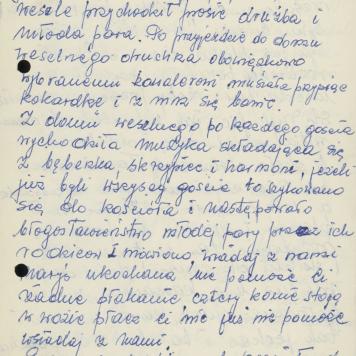 wesele przychodził prosić drużba i
młoda para. Po przyjeździe do domu
weselnego druchka obowiązkowo
wybranemu kawalerowi musiała przypiąć
kokardkę i z nim się bawić.
Z domu weselnego po każdego gościa
wychodziła muzyka składająca się
z bębenka, skrzypiec i harmoni, jeżeli
już byli wszyscy goście to szykowano
się do kościoła i następowało
błogosławieństwo młodej pary przez ich
rodziców i mówiono, wsiadaj z nami
Maryś ukochana nic pomoże ci
żadne płakanie, cztery konie stoją
w wozie płacz ci nic już nie pomoże
wsiadaj z nami.